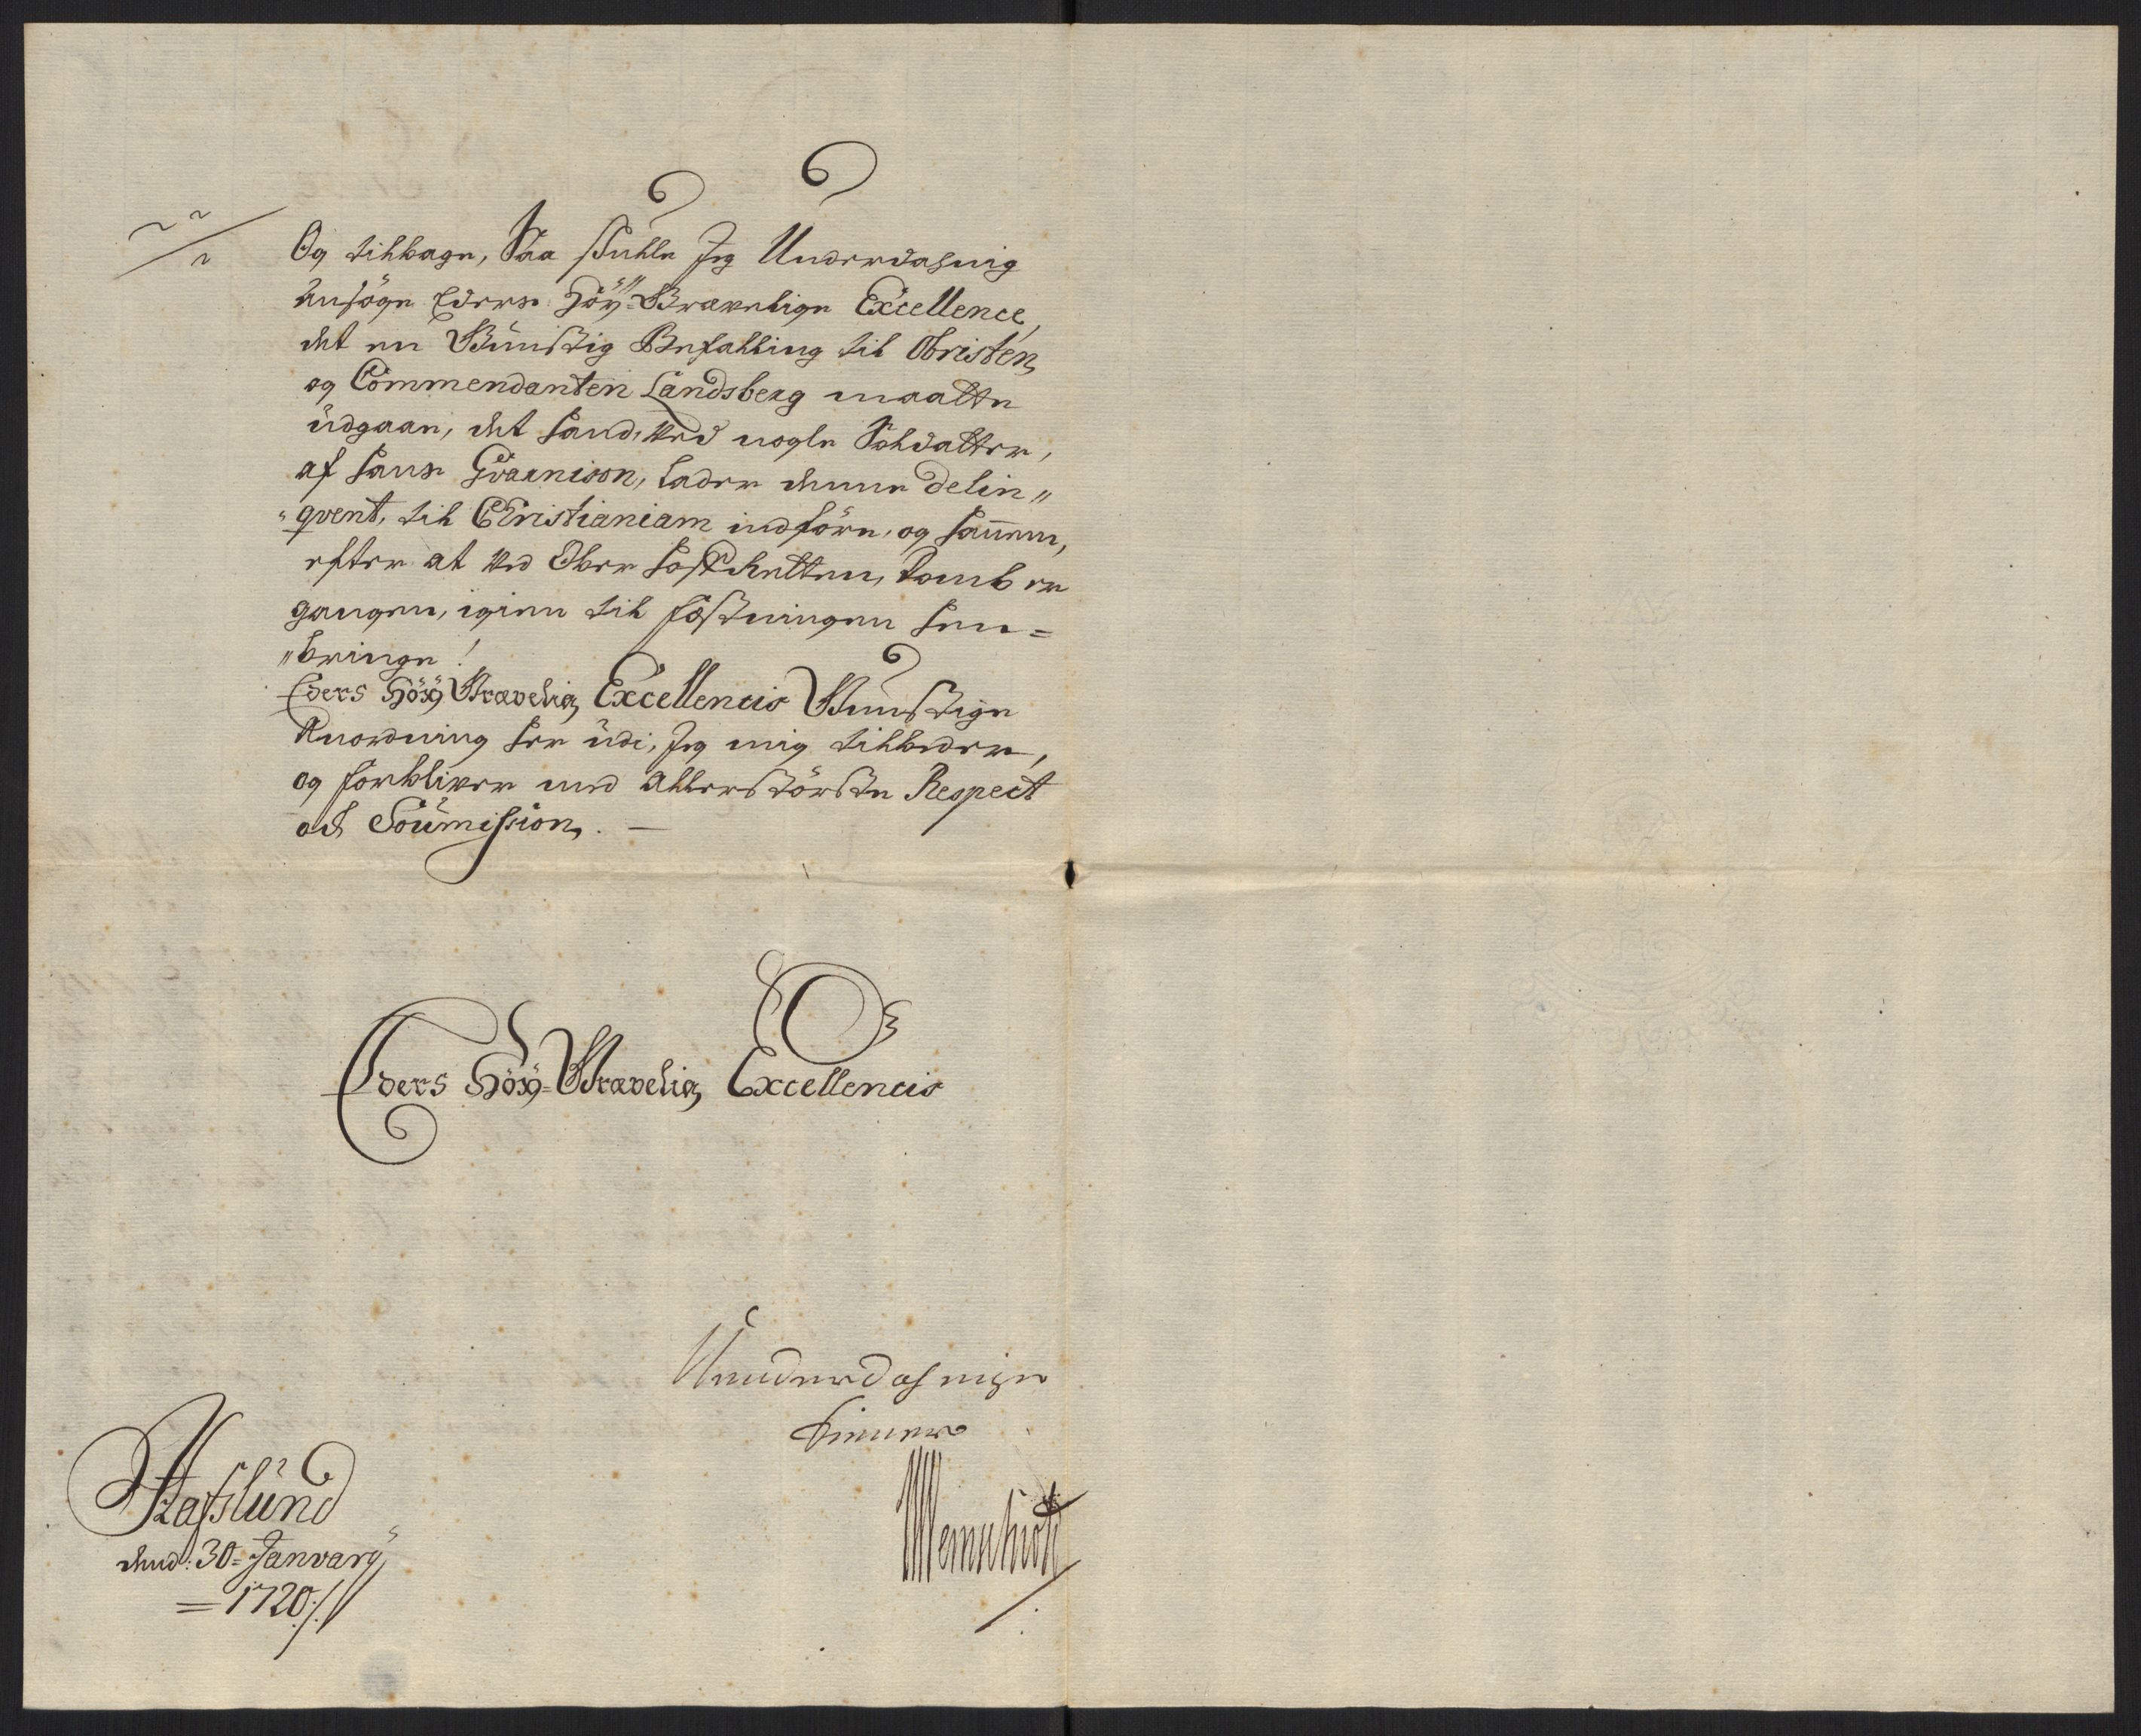 Og tilbage, Saa skulle Jeg Underdahnig
Ansöge Eders Höy-Grævelige Excellence,
det en Günstig Befalling til Obristen,
og Commendanten Landsberg maatte
üdgaae, det hand, ved nogle Soldatter,
af hans Gvarnison, lader denne delin"
"qvent, til Christianiam indföre, og hannem,
efter at ved Ober Hoff Retten, domb er
gangen, igien til festningen hen=
"bringe!
Eders Höy Grævelig Excellencis Günstige
Anordning her üdi, Jeg mig tilbeder,
og forbliver med Allerstörste Respect
och Soümission. —
Eders Höy-Grævelig Excellencis
Unnderdahnige
tienner
Hafslünd
dend: 30= Janvarÿ
=1720:/